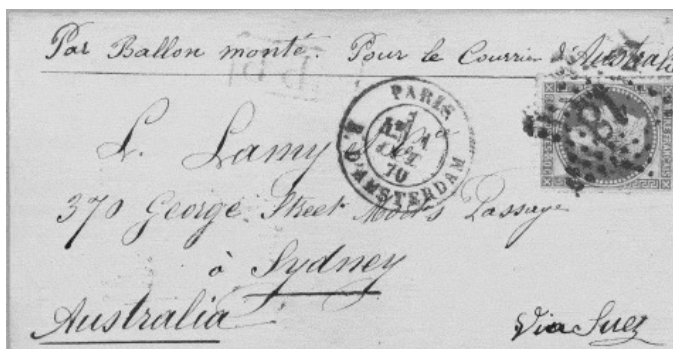 Par Ballon monté. Pour le Courrier d'Australie
PP
PARIS
OCT
70
R. D'AMSTERDAM
L. Lamy
370 George Street Moort's Passage
à Sydney
Australia
Via Suez